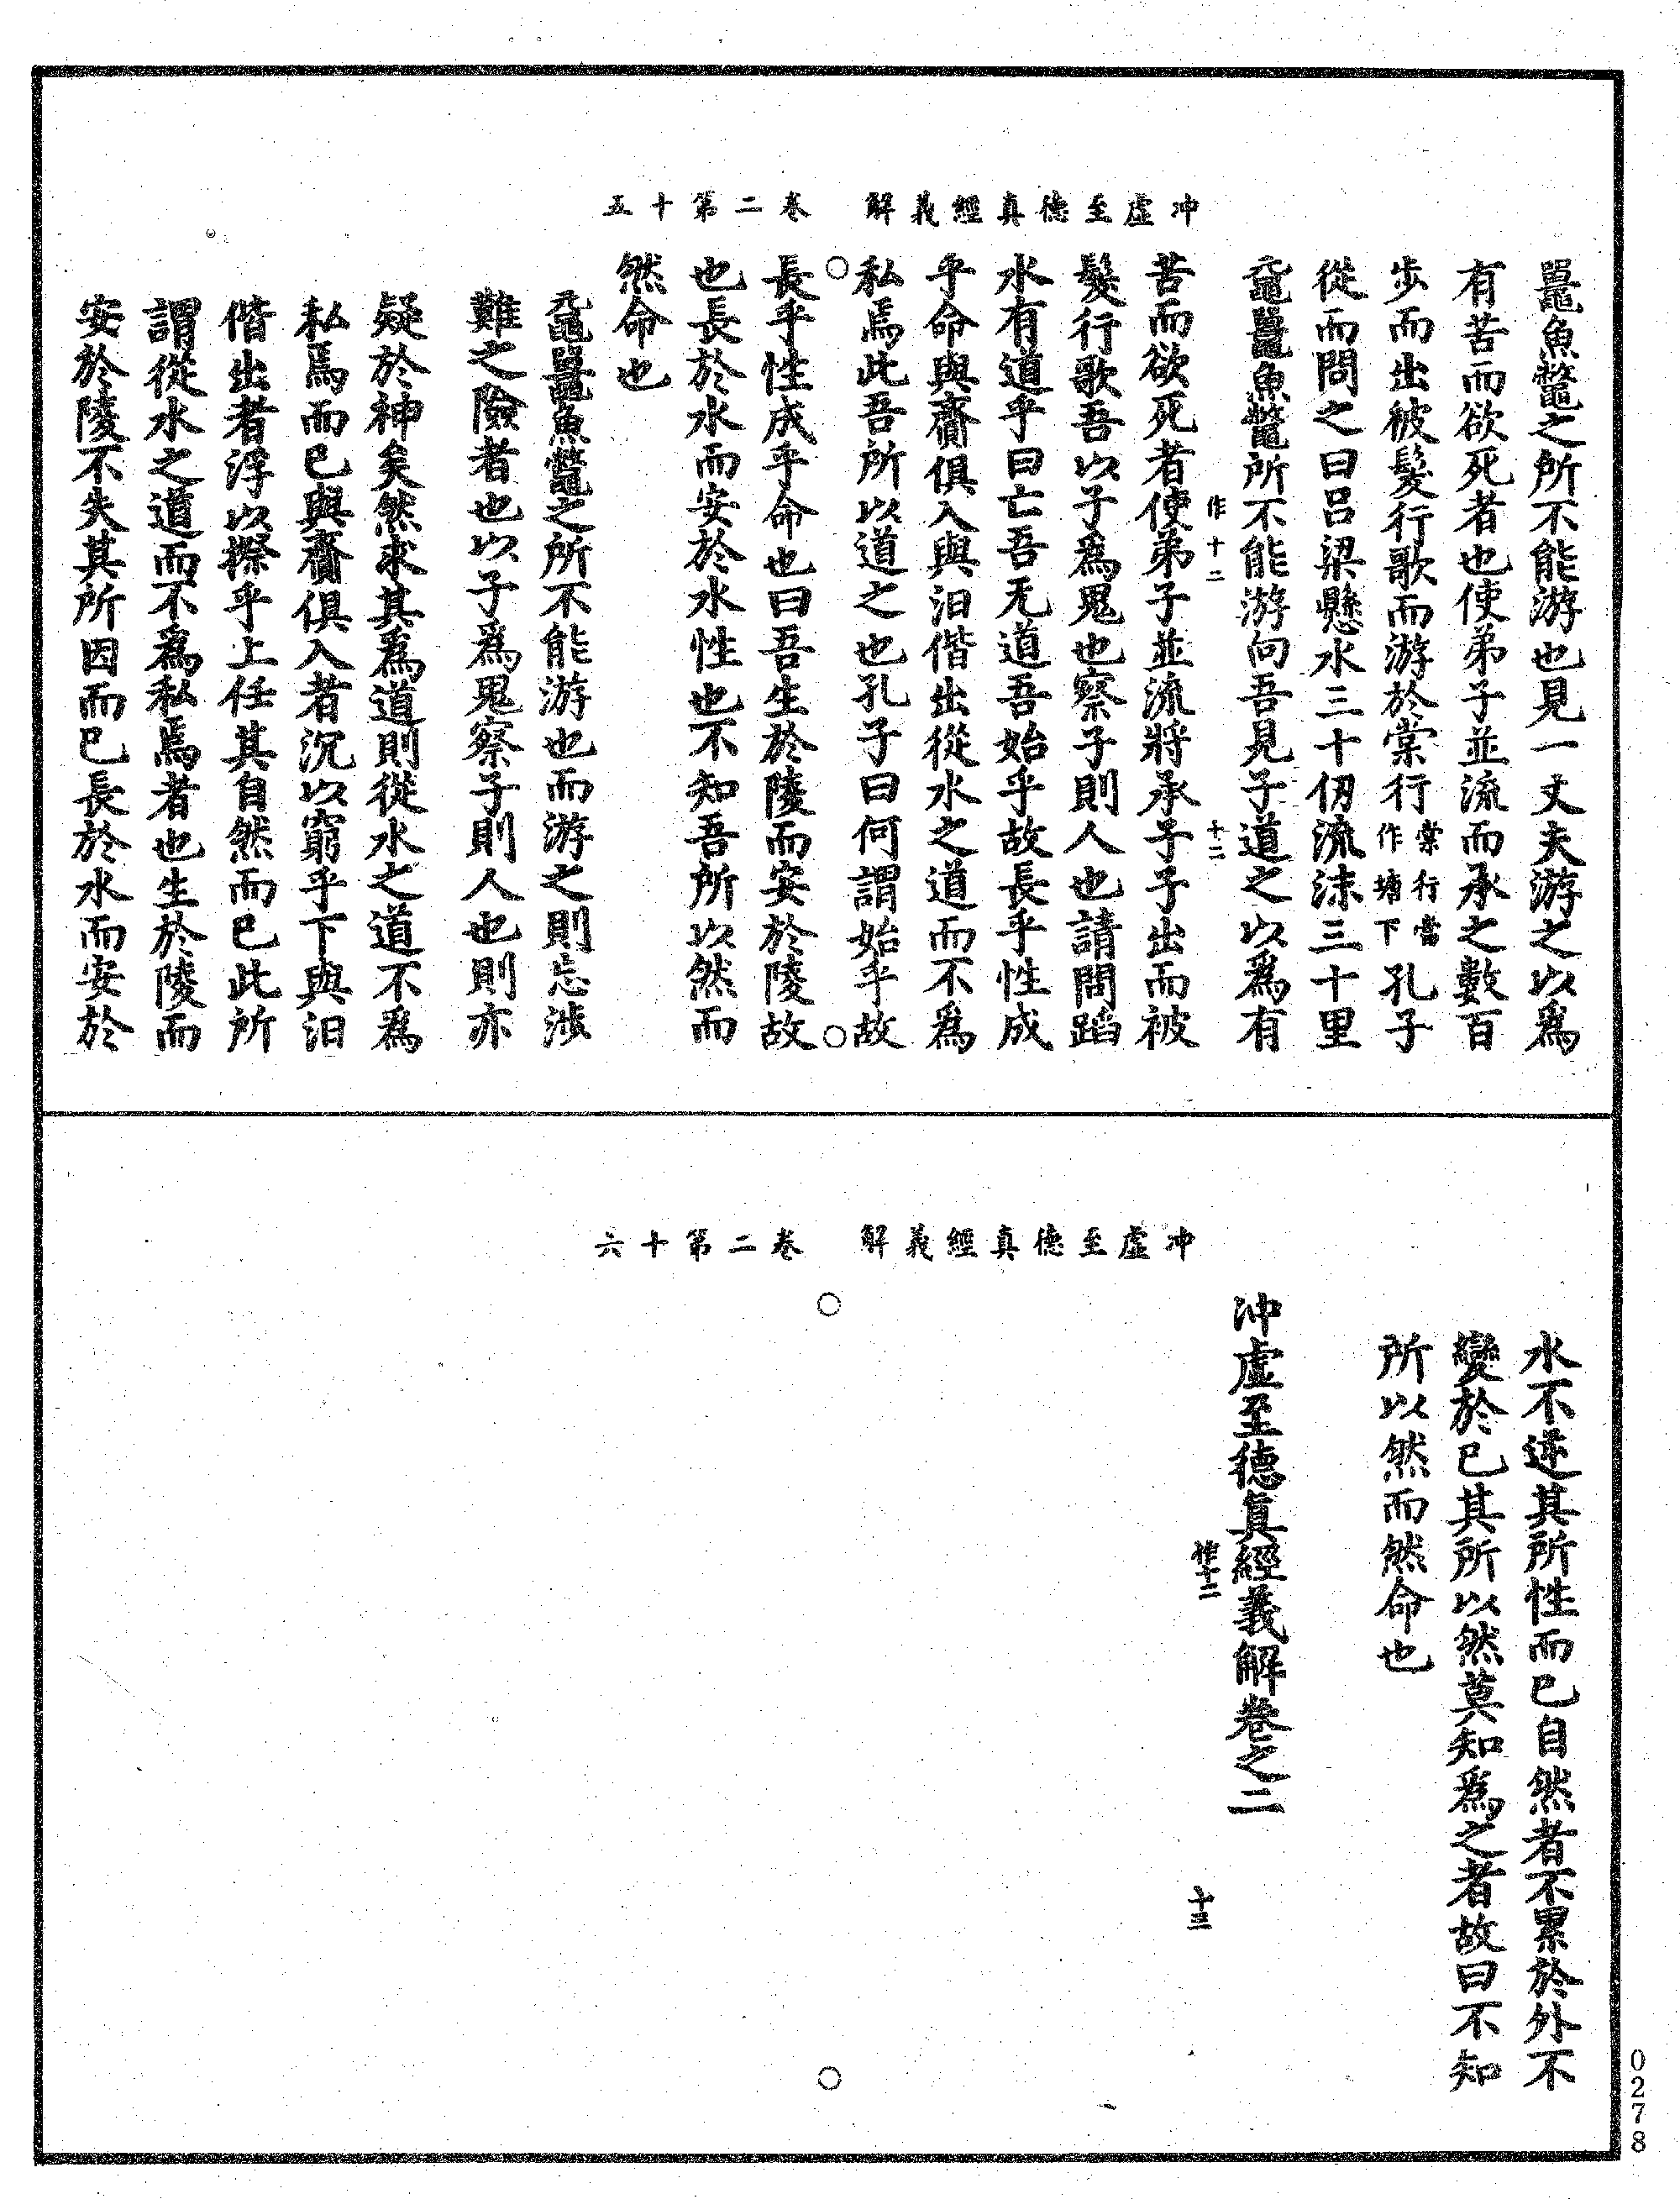 冲虛至德真經義解　卷二第十五
鼉魚鼈之所不能游也見一丈夫游之以為
有苦而欲死者也使弟子並流而承之數百
步而出彼髮行歌而游於棠行棠行當作塘下孔子
從而問之曰呂梁懸水三十仞流沫三十里
黿鼉魚鼈所不能游向吾見子道之以為有
作十二　十二
苦而欲死者使弟子並流將承子子出而被
髮行歌吾以子為鬼也察子則人也請問蹈
水有道乎曰亡吾无道吾始乎故長乎性成
乎命與齎俱入與汩偕出從水之道而不為
私焉此吾所以道之也孔子曰何謂始乎故
長乎性成乎命也曰吾生於陵而安於陵故
也長於水而安於水性也不知吾所以然而
然命也
黿鼉魚鼈之所不能游也而游之則忘涉
難之險者也以子為鬼察子則人也則亦
疑於神矣然求其為道則從水之道不為
私焉而已與齎俱入者沉以窮乎下與汩
偕出者浮以際乎上任其自然而已此所
謂從水之道而不為私焉者也生於陵而
安於陵不失其所因而已長於水而安於
冲虛至德真經義解　卷二第十六
水不逆其所性而已自然者不累於外不
變於已其所以然莫知為之者故曰不知
所以然而然命也
冲虛至德真經義解卷之二
作十二　十三
0278